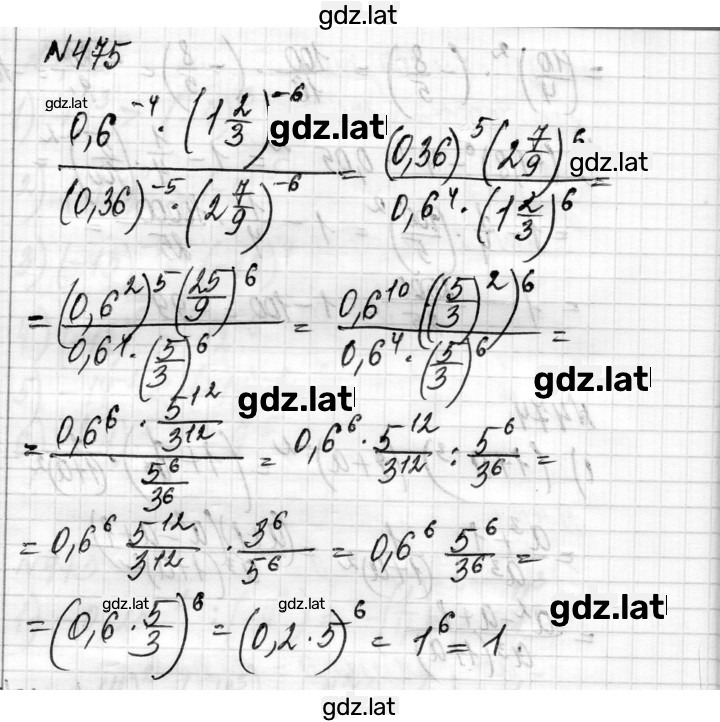 gdz.lat
N475
gdz.lat
0,6^{-4} · (1 2/3)^{-6} / (0,36)^{-5} · (2 7/9)^{-6} = (0,36)^5 (2 7/9)^6 / 0,6^4 · (1 2/3)^6 =
gdz.lat
gdz.lat
= (0,6^2)^5 (25/9)^6 / 0,6^4 · (5/3)^6 = 0,6^{10} ((5/3)^2)^6 / 0,6^4 · (5/3)^6 =
gdz.lat
gdz.lat
= 0,6^6 · 5^{12}/3^{12} / 5^6/3^6 = 0,6^6 · 5^{12}/3^{12} : 5^6/3^6 =
= 0,6^6 5^{12}/3^{12} · 3^6/5^6 = 0,6^6 5^6/3^6 =
gdz.lat
gdz.lat
gdz.lat
= (0,6 · 5/3)^6 = (0,2 · 5)^6 = 1^6 = 1
gdz.lat